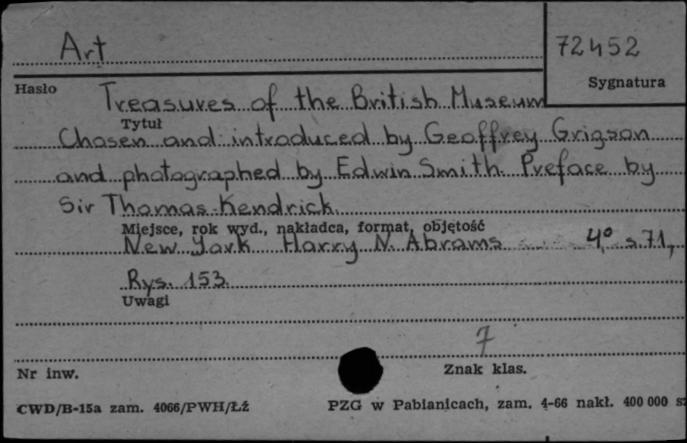 Art
72452
Hasło
Sygnatura
Treasures of the British Museum
Tytuł
Chosen and introduced by Geoffrey Grigson
and photographed by Edwin Smith. Preface by
Sir Thomas Kendrick.
Miejsce, rok wyd., nakładca, format, objętość
New York Harry N. Abrams 4° s.71,
Rys. 153.
Uwagi
7
Nr inw.
Znak klas.
CWD/B-15a zam. 4066/PWH/Łź PZG w Pabianicach, zam. 4-66 nakł. 400 000